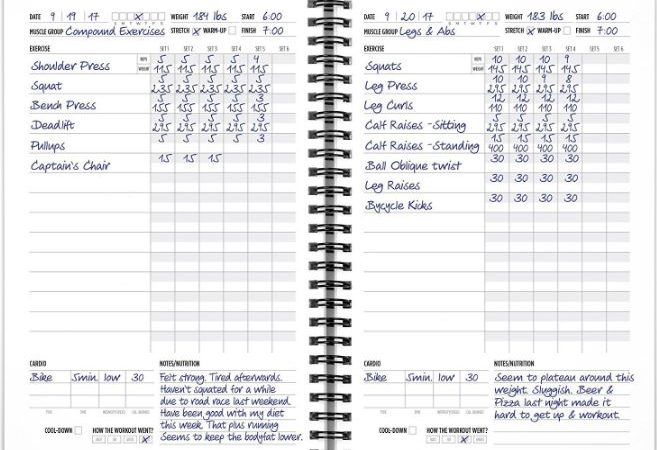 DATE 9 19 17 X WEIGHT 184 lbs START 6:00
S M T W T F S
MUSCLE GROUP Compound Exercises STRETCH X WARM-UP FINISH 7:00
EXERCISE SET 1 SET 2 SET 3 SET 4 SET 5 SET 6
Shoulder Press REPS 5 5 5 5 4
WEIGHT 115 115 115 115 115
Squat 5 5 5 5 5
235 235 235 235 235
Bench Press 5 5 5 5 3
155 155 155 155 155
Deadlift 5 5 5 5 3
295 295 295 295 295
Pullups 5 5 5 5 3
Captain's Chair 15 15 15
CARDIO
Bike 5min. low 30
COOL-DOWN HOW THE WORKOUT WENT? X
NOTES/NUTRITION
Felt strong. Tired afterwards.
Haven't squated for a while
due to road race last weekend.
Have been good with my diet
this week. That plus running
Seems to keep the bodyfat lower.
DATE 9 20 17 X WEIGHT 183 lbs START 6:00
S M T W T F S
MUSCLE GROUP Legs & Abs STRETCH X WARM-UP FINISH 7:00
EXERCISE SET 1 SET 2 SET 3 SET 4 SET 5 SET 6
Squats REPS 10 10 10 9
WEIGHT 145 145 145 145
Leg Press 10 10 9 8
295 295 295 295
Leg Curls 12 12 12 12
110 110 110 110
Calf Raises -Sitting 5 5 5 5
295 295 295 295
Calf Raises -Standing 15 15 15 15
400 400 400 400
Ball Oblique twist 30 30 30 30
Leg Raises 30 30 30 30
Bycycle Kicks 30 30 30 30
CARDIO
Bike 5min. low 30
COOL-DOWN HOW THE WORKOUT WENT? X
NOTES/NUTRITION
Seem to plateau around this
weight. Sluggish. Beer &
Pizza last night made it
hard to get up & workout.